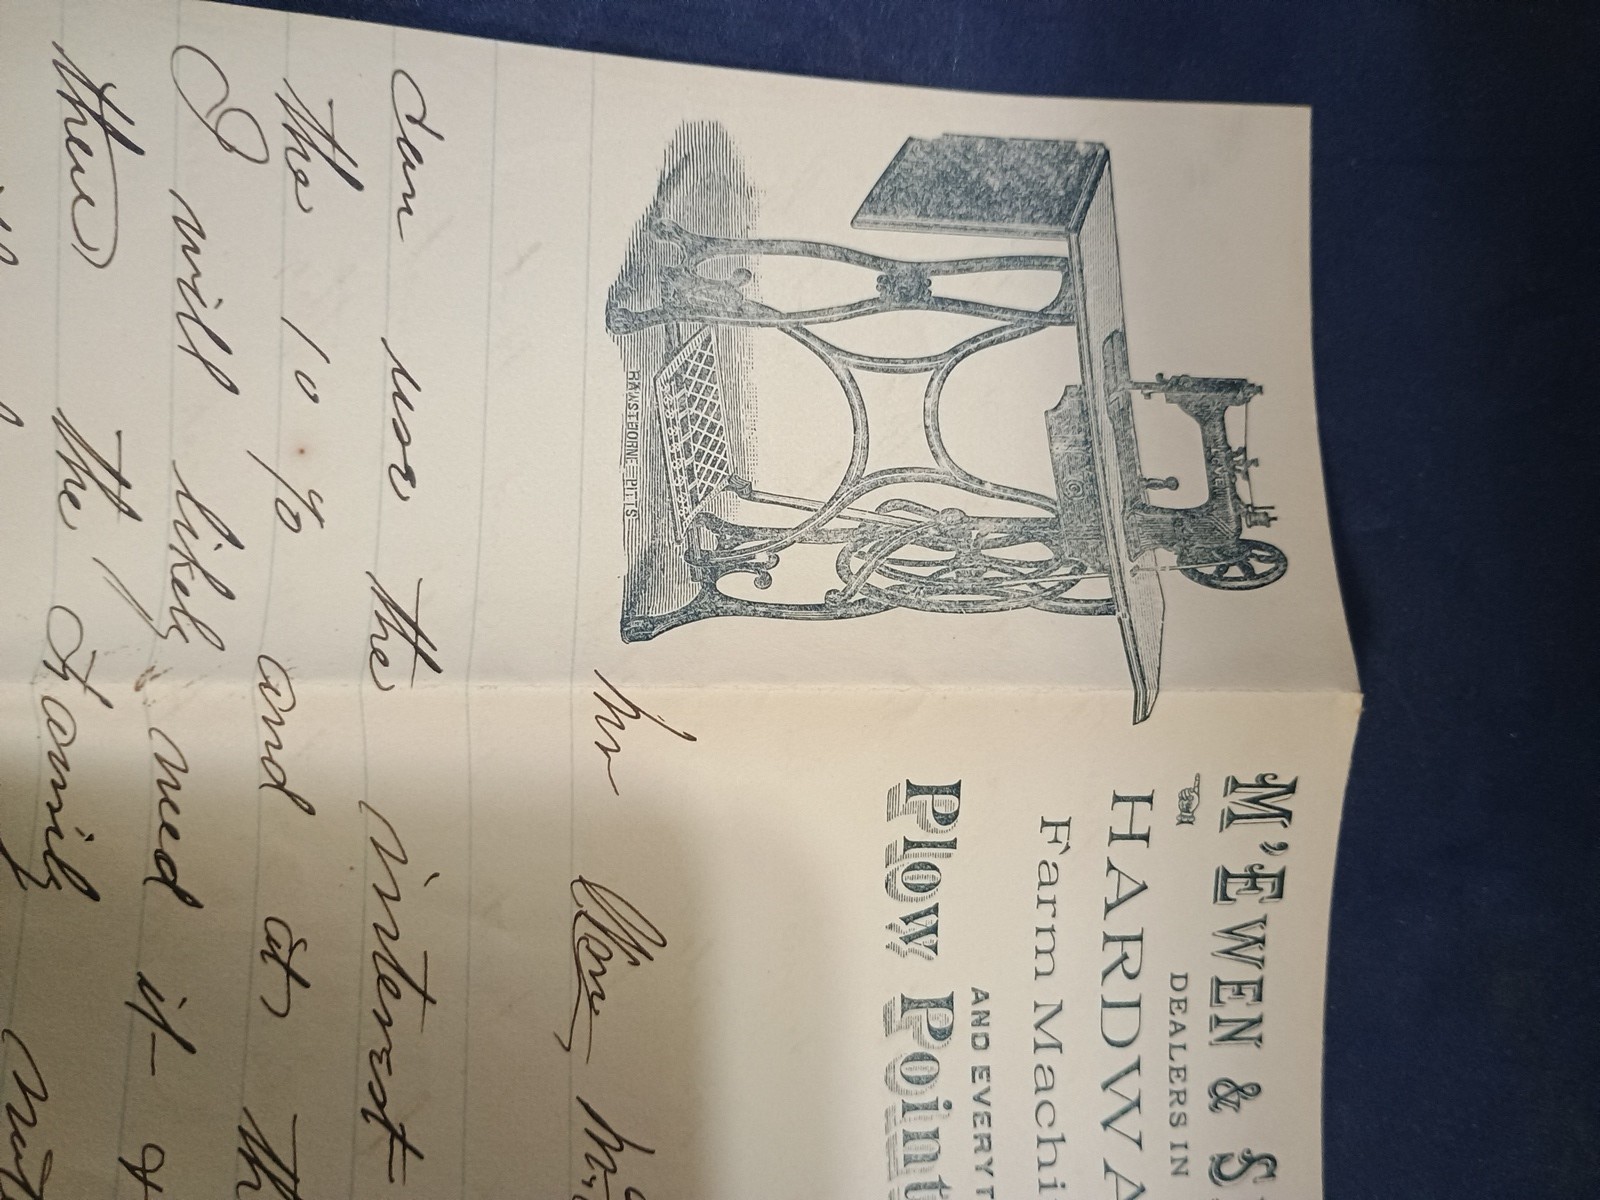 M'EWEN & S
DEALERS IN
HARDWA
Farm Machi
AND EVERYT
Plow Point
RAWSTHORNE PITTS.
Mr
can use the interest
the 10 % and at th
I will likely need it
there the family